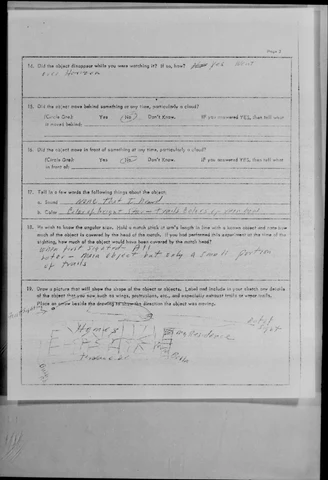 Page 3
14. Did the object disappear while you were watching it? If so, how? Yes Went
over Horizon
15. Did the object move behind something at any time, particularly a cloud?
(Circle One): Yes No Don't Know. IF you answered YES, then tell what
it moved behind:
16. Did the object move in front of something at any time, particularly a cloud?
(Circle One): Yes No Don't Know. IF you answered YES, then tell what
it front of:
17. Tell in a few words the following things about the object:
a. Sound none That I heard
b. Color Color of bright star
18. We wish to know the angular size. Hold a match stick at arm's length in line with a known object and note how
much of the object is covered by the head of the match. If you had performed this experiment at the time of the
sighting, how much of the object would have been covered by the match head?
when first sighted All
later - Main object but only a small portion
of trails
19. Draw a picture that will show the shape of the object or objects. Label and include in your sketch any details
of the object that you saw such as wings, protrusions, etc., and especially exhaust trails or vapor trails.
Place an arrow beside the drawing to show the direction the object was moving.